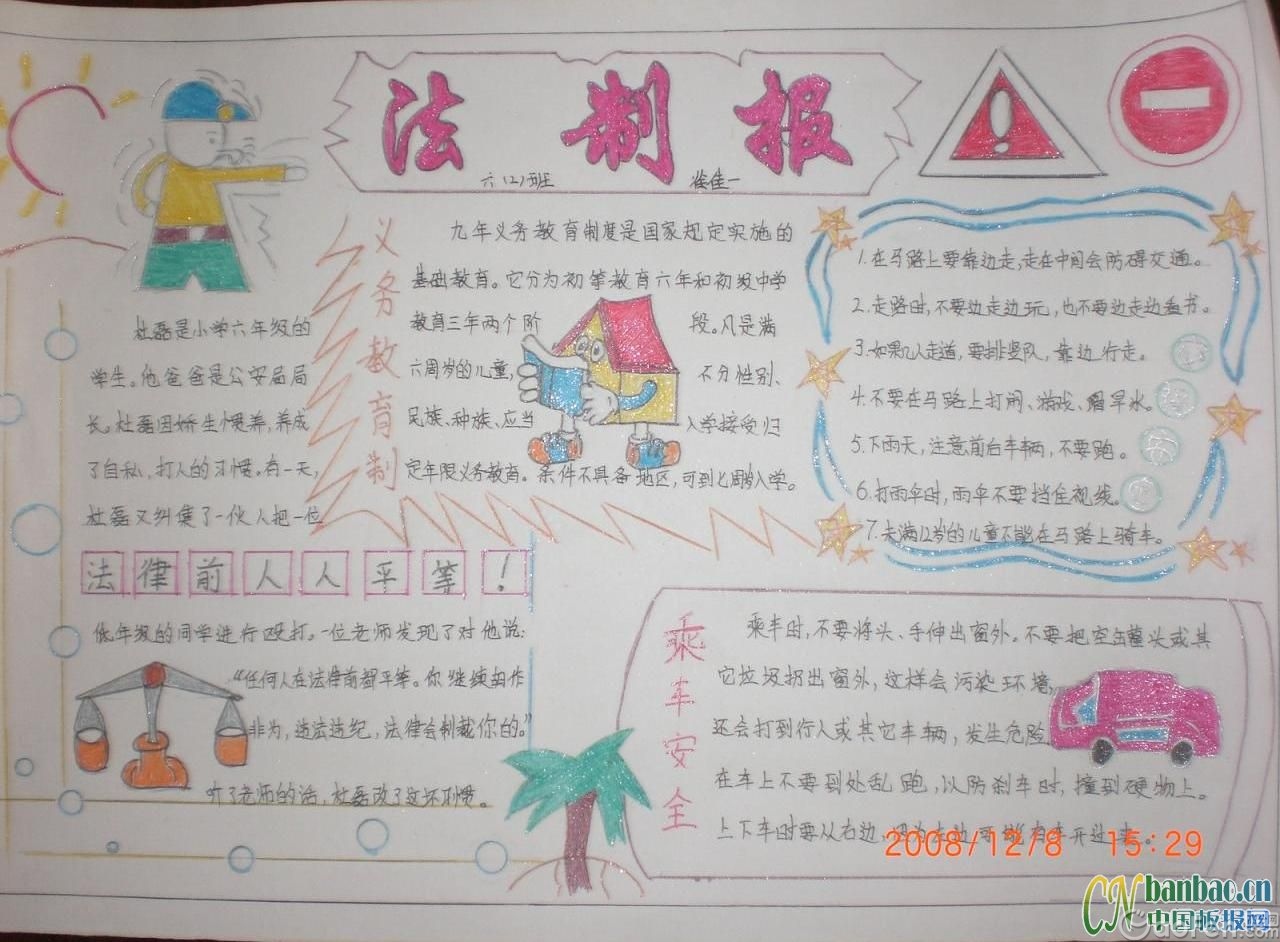 法制报
六(2)班
佳一
杜磊是小学六年级的
学生。他爸爸是公安局局
长。杜磊因娇生惯养,养成
了自私,打人的习惯。有一天,
杜磊又纠集了一伙人把一位
法律前人人平等!
低年级的同学进行殴打。一位老师发现了对他说:
“任何人在法律前都平等。你继续胡作
非为,违法违纪,法律会制裁你的。”
听了老师的话,杜磊改了这坏习惯。
义务教育制
九年义务教育制度是国家规定实施的
基础教育。它分为初等教育六年和初级中学
教育三年两个阶段。凡是满
六周岁的儿童,不分性别、
民族、种族、应当入学接受归
定年限义务教育。条件不具备地区,可到七周岁入学。
1.在马路上要靠边走,走在中间会防碍交通。
2.走路时,不要边走边玩,也不要边走边看书。
3.如果几人走道,要排竖队,靠边行走。
4.不要在马路上打闹、游戏、溜旱冰。
5.下雨天,注意前后车辆,不要跑。
6.打雨伞时,雨伞不要挡住视线。
7.未满12岁的儿童不能在马路上骑车。
乘车安全
乘车时,不要将头、手伸出窗外。不要把空缶罐头或其
它垃圾扔出窗外,这样会污染环境,
还会打到行人或其它车辆,发生危险。
在车上不要到处乱跑,以防刹车时,撞到硬物上。
上下车时要从右边,因为左边可能有车开过来。
2008/12/8 15:29
CN banbao.cn
中国板报网